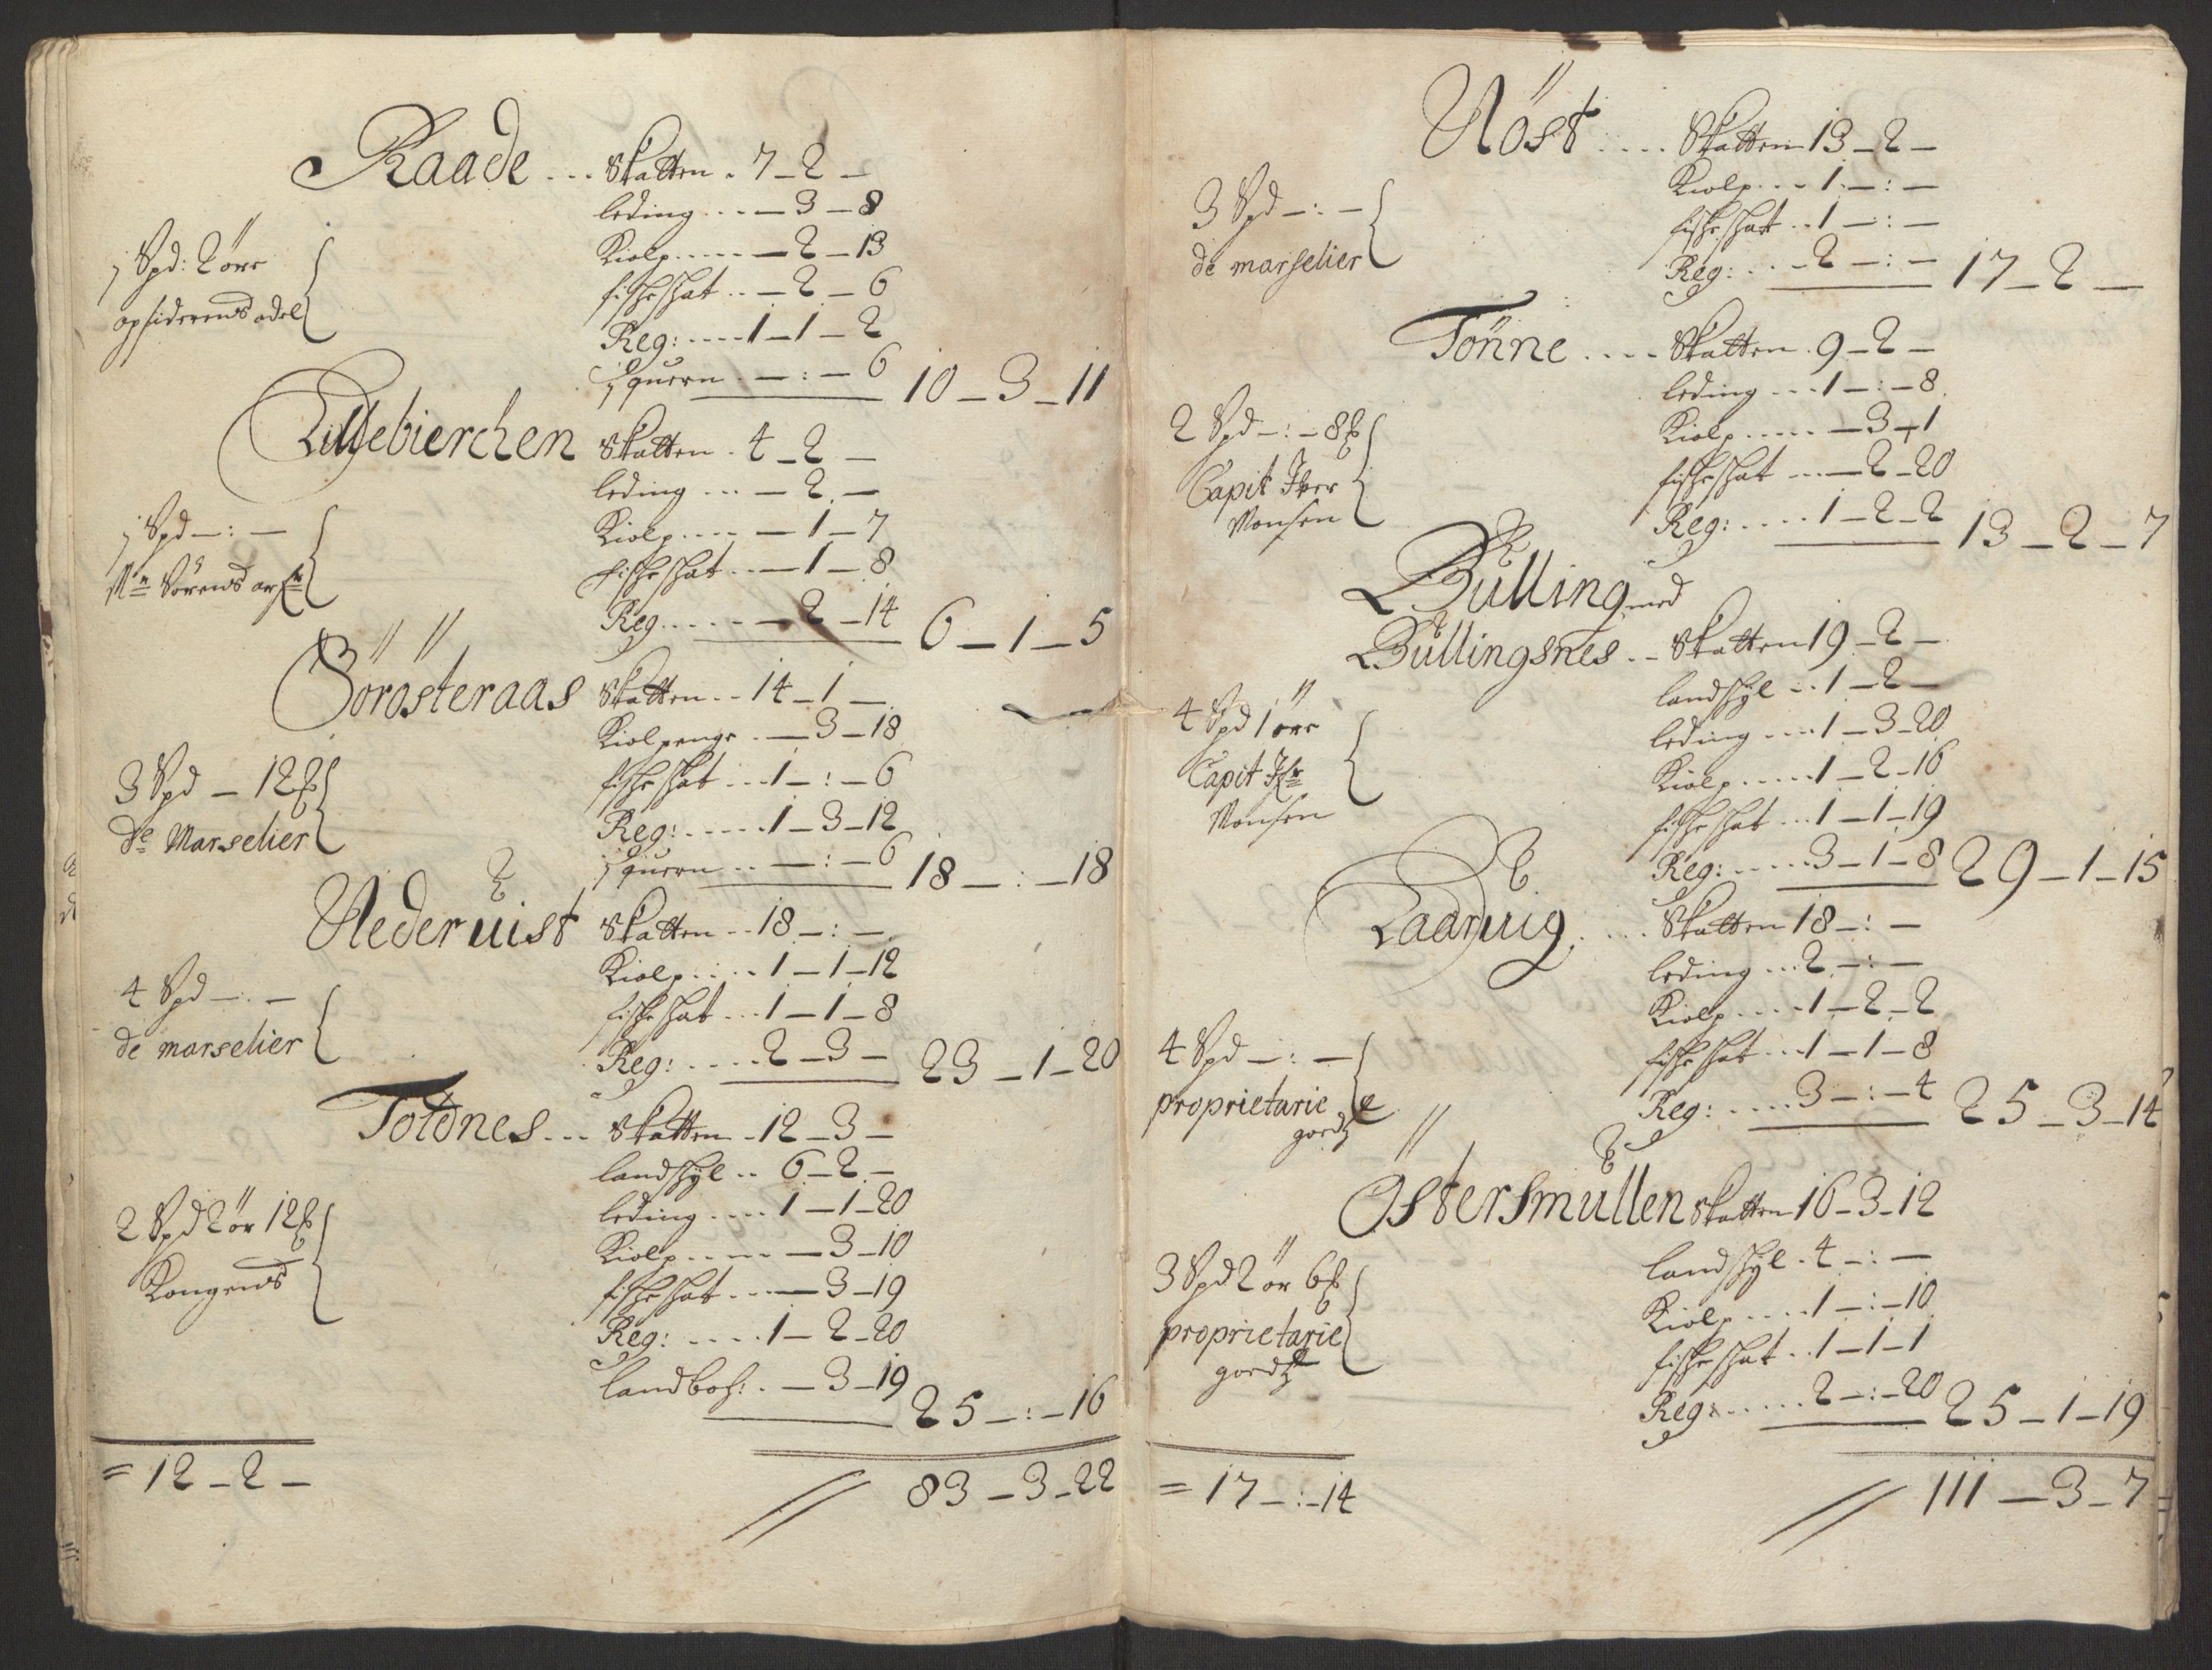 Raade ... Skatten . 7 - 2 -
leding ... - 3 - 8
Kiolp ..... - 2 - 13
1 Spd: 2 öre
fiskeskat .. - 2 - 6
opsiderends odel
Reg: .... 1 - 1 - 2
1 quern . - : - 6 10 - 3 - 11
Lillebierchen Skatten . 4 - 2 -
leding ... - 2 -
1 Spd - : -
Kiolp .... - 1 - 7
Mr Sörends arfr
fiskeskat .. - 1 - 8
Reg ..... - 2 - 14 6 - 1 - 5
Sörösteraas Skatten .. 14 - 1 -
Kiolpenge . - 3 - 18
3 Spd - 12
fiskeskat ... 1 - : - 6
De Marselier
Reg: ..... 1 - 3 - 12
1 quern .. - : - 6 18 - : - 18
Nederuist Skatten .. 18 - : -
Kiolp .... 1 - 1 - 12
4 Spd - : -
fiskeskat ... 1 - 1 - 8
de marselier
Reg: ..... 2 - 3 - 23 - 1 - 20
Totdnes ... Skatten . 12 - 3 -
landskyl .. 6 - 2 -
2 Spd 2 ör 12
leding .... 1 - 1 - 20
Kongends
Kiolp ..... - 3 - 10
fiskeskat ... - 3 - 19
Reg: .... 1 - 2 - 20
landboh: . - 3 - 19 25 - : - 16
= 12 - 2 -
83 - 3 - 22
Nöst .... Skatten 13 - 2 -
Kiolp ... 1 - : -
3 Spd - : -
fiskeskat .. 1 - : -
de marselier
Reg: ... 2 - : - 17 - 2 -
Tönne .... Skatten . 9 - 2 -
leding ... 1 - : - 8
2 Spd - : - 8
Kiolp ..... - 3 - 1
Capit Iver
fiskeskat ... - 2 - 20
Monsen
Reg: .... 1 - 2 - 2 13 - 2 - 7
Bulling med
Bullingsnes .. Skatten 19 - 2 -
landskyl .. 1 - 2 -
4 Spd 1 öre
leding .... 1 - 3 - 20
Capit Ifr
Kiolp ..... 1 - 2 - 16
Monsen
fiskeskat ... 1 - 1 - 19
Reg: .... 3 - 1 - 8 29 - 1 - 15
Laaruig .... Skatten 18 - : -
leding ... 2 - : -
Kiolp .... 1 - 2 - 2
4 Spd - : -
fiskeskat ... 1 - 1 - 8
proprietarie
goedtz
Reg: .... 3 - : - 4 25 - 3 - 14
Östersmullen Skatten 16 - 3 - 12
landskyl . 4 - : -
3 Spd 2 ör 6
Kiolp .... 1 - : - 10
proprietarie
fiskeskat .. 1 - 1 - 1
goedtz
Reg: ..... 2 - : - 20 25 - 1 - 19
= 17 - : - 14
111 - 3 - 7